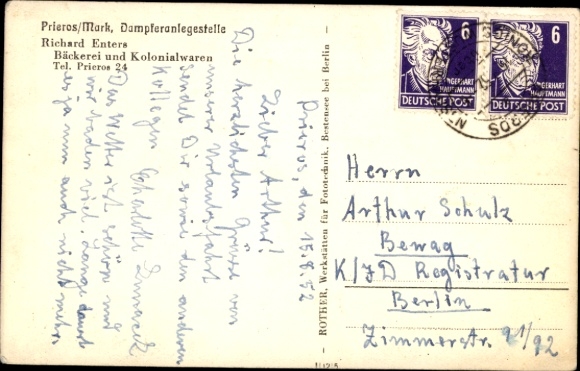 Prieros/Mark, Dampferanlegestelle
Richard Enters
Bäckerei und Kolonialwaren
Tel. Prieros 24
Prieros, den 15.8.52
Lieber Arthur!
Die herzlichsten Grüße von
unserer Urlaubsfahrt
sendet Dir sowie den anderen
Kollegen Charlotte
Das Wetter ist schön und
wir baden viel. Lange dauert
es ja nun auch nicht mehr.
ROTHER, Werkstätten für Fototechnik, Bestensee bei Berlin
6
GERHART
HAUPTMANN
DEUTSCHE POST
6
GERHART
HAUPTMANN
DEUTSCHE POST
Herrn
Arthur Schulz
Bewag
K/JD Registratur
Berlin
Zimmerstr. 91/92